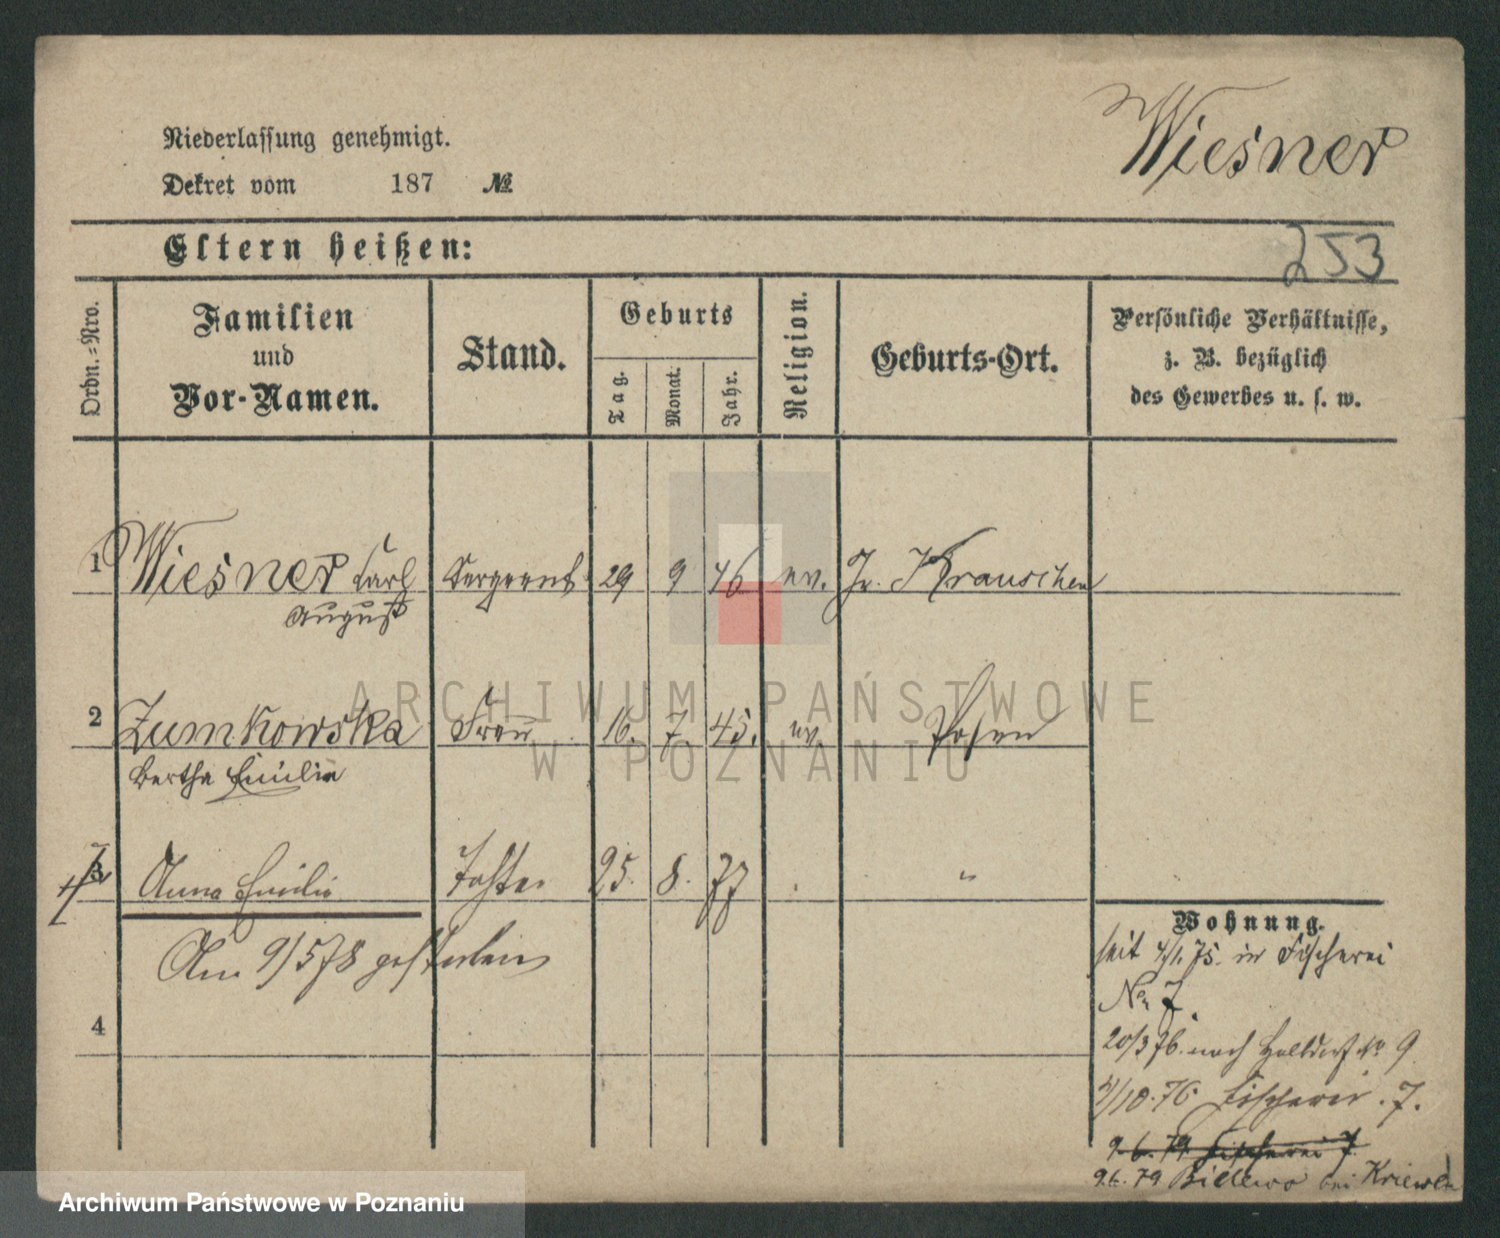 Wiesner
Niederlassung genehmigt.
Dekret vom 187 №
Eltern heißen:
253
Ordn.=Nro.
Familien
und
Vor-Namen.
Stand.
Geburts
Tag.
Monat.
Jahr.
Religion.
Geburts-Ort.
Persönliche Verhältnisse,
z. B. bezüglich
des Gewerbes u. s. w.
1 Wiesner Carl Sergeant 29 9 46 ev. Gr. Krauschen
August
2 Zumkowska Frau 16. 7. 45. ev. Posen
Bertha Emilie
3 Anna Emilie Tochter 25. 8. 77 "
Am 9/5 78 gestorben
4
Wohnung.
seit 4/1. 75. in Fischerei
No 7.
20/3 76. nach Halbdorf No 9
/10. 76. Fischerei . 7.
9.6.79 Fischerei 7
9.6.79 Bielewo bei Kriewen
ARCHIWUM PAŃSTWOWE
W POZNANIU
Archiwum Państwowe w Poznaniu